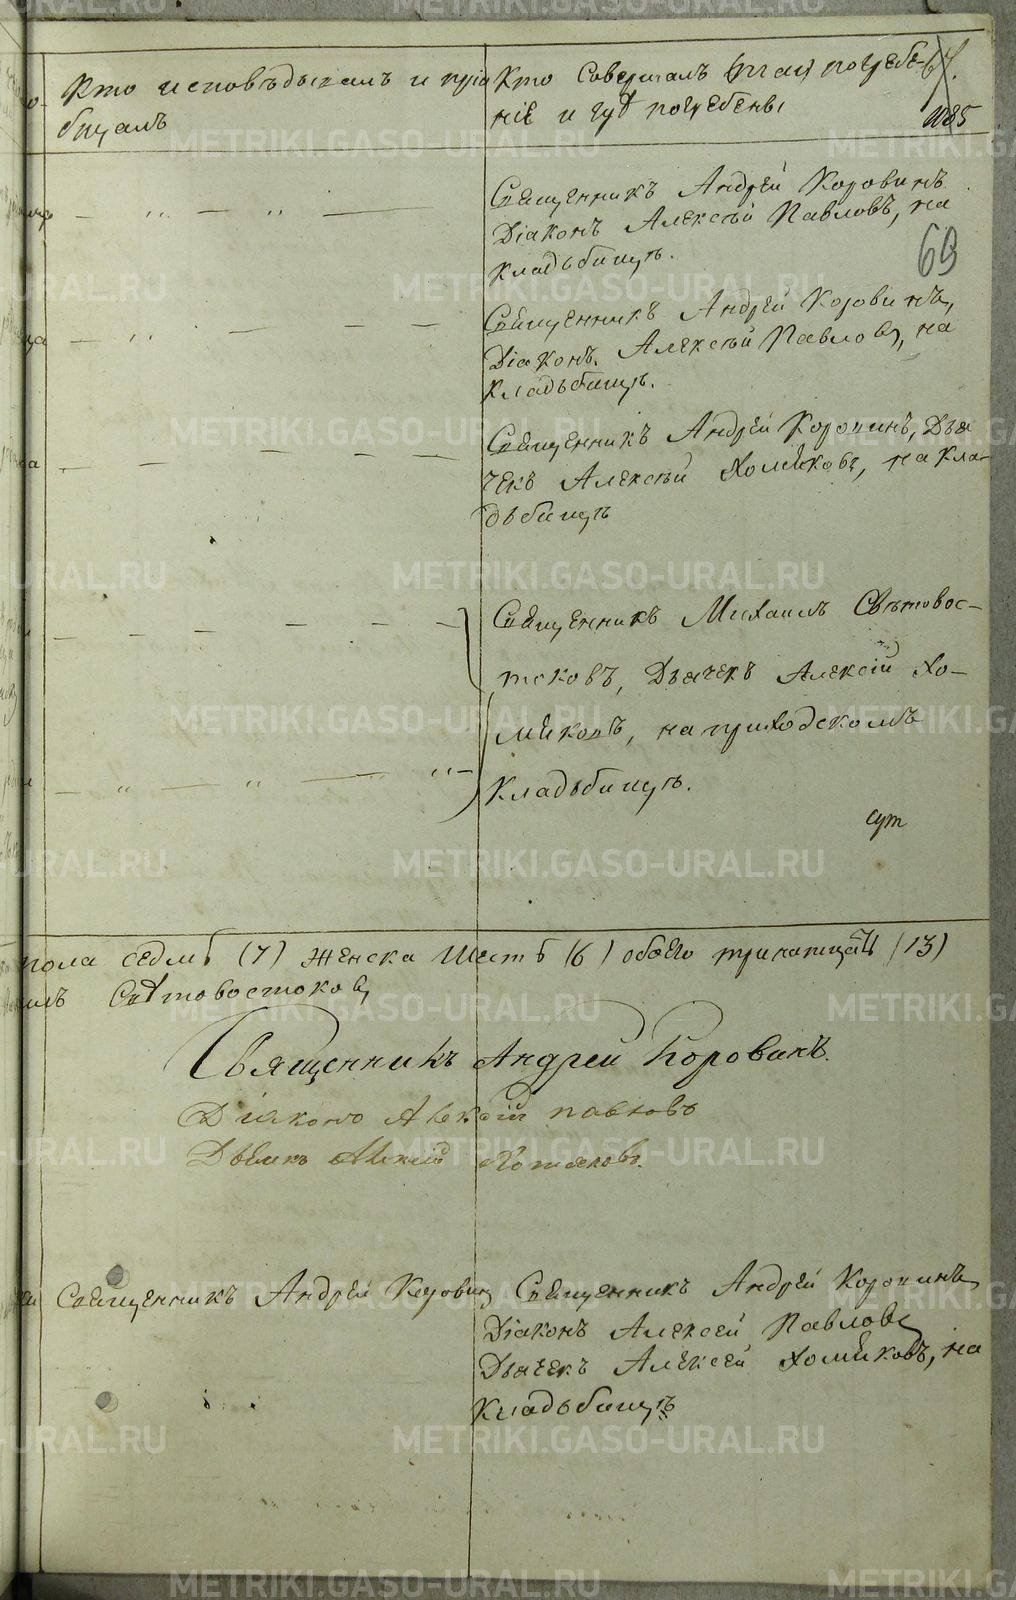 Кто исповѣдывалъ и прiо
бщалъ
Кто совершалъ погребе-
нiе и гдѣ погребены
1085
69
Священникъ Андрей Коровинъ
Дiаконъ Алексѣй Павловъ, на
кладьбищѣ.
Священникъ Андрей Коровинъ,
Дiаконъ Алексѣй Павловъ, на
кладьбищѣ.
Священникъ Андрей Коровинъ, Дья
чекъ Алексѣй Хомяковъ, на кла-
дьбищѣ
Священникъ Михаилъ Свѣтовос-
токовъ, Дьячекъ Алексiй Хо-
мяковъ, на приходскомъ
кладьбищѣ.
пола седмь (7) женска шесть (6) обоего тринатцать (13)
илъ Свѣтовостоковъ
Священникъ Андрей Коровинъ.
Дiаконъ Алексiй Павловъ
Дьячекъ Алексiй Хомяковъ.
Священникъ Андрей Коровинъ
Священникъ Андрей Коровинъ
Дiаконъ Алексей Павловъ
Дьячекъ Алексей Хомяковъ, на
кладьбищѣ
METRIKI.GASO-URAL.RU